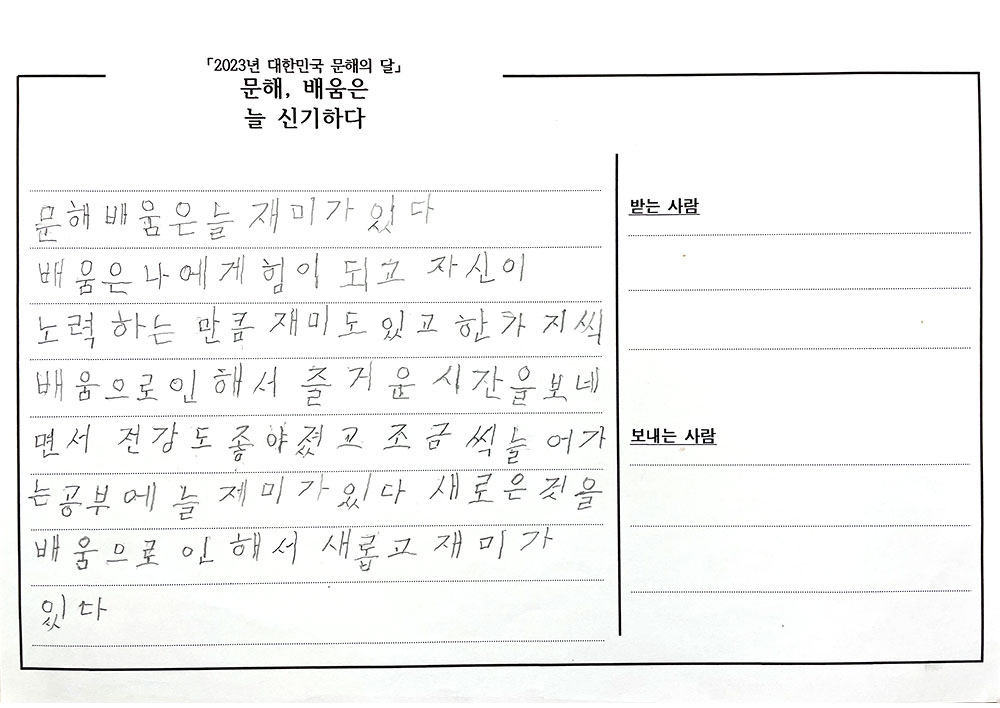 「2023년 대한민국 문해의 달」
문해, 배움은
늘 신기하다
문해배움은늘 재미가 있다
배움은나에게 힘이 되고 자신이
노력 하는 만큼 재미도 있고 한가지씩
배움으로인해서 즐거운 시간을보네
면서 건강도 좋아졌고 조금씩늘어가
는공부에 늘 재미가있다 새로운것을
배움으로 인해서 새롭고 재미가
있다
받는 사람
보내는 사람